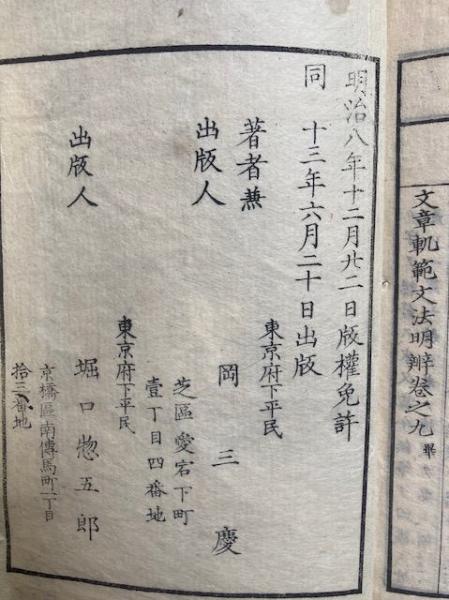 文章軌範文法明辨卷之九 畢
明治八年十二月廿二日版權免許
同 十三年六月二十日出版
著者兼
出版人
東京府下平民
岡三慶
芝區愛宕下町
壹丁目四番地
出版人
東京府下平民
堀口惣五郎
京橋區南傳馬町一丁目
拾三番地